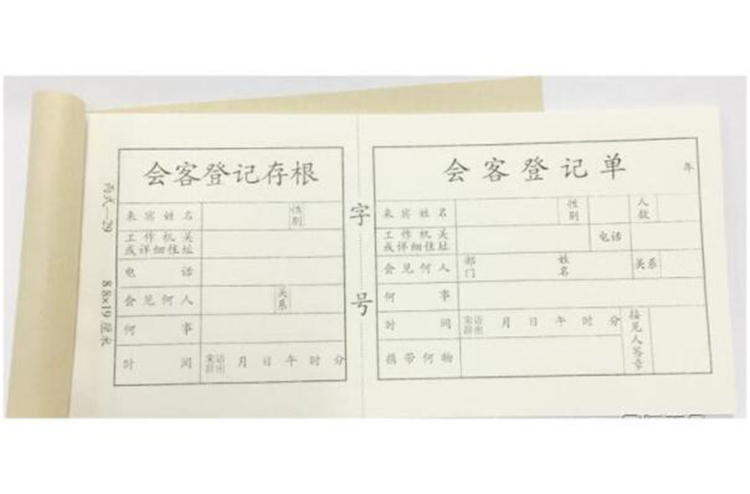 会客登记存根
来宾姓名 性别
工作机关
或详细住址
电话
会见何人 关系
何事
时间 来访 辞出 月 日 午 时 分
丙式—29 8.8×19厘米
字 号
会客登记单 年
来宾姓名 性别 人数
工作机关
或详细住址 电话
会见何人 部门 姓名 关系
何事
时间 来访 辞出 月 日 午 时 分 接见人签章
携带何物